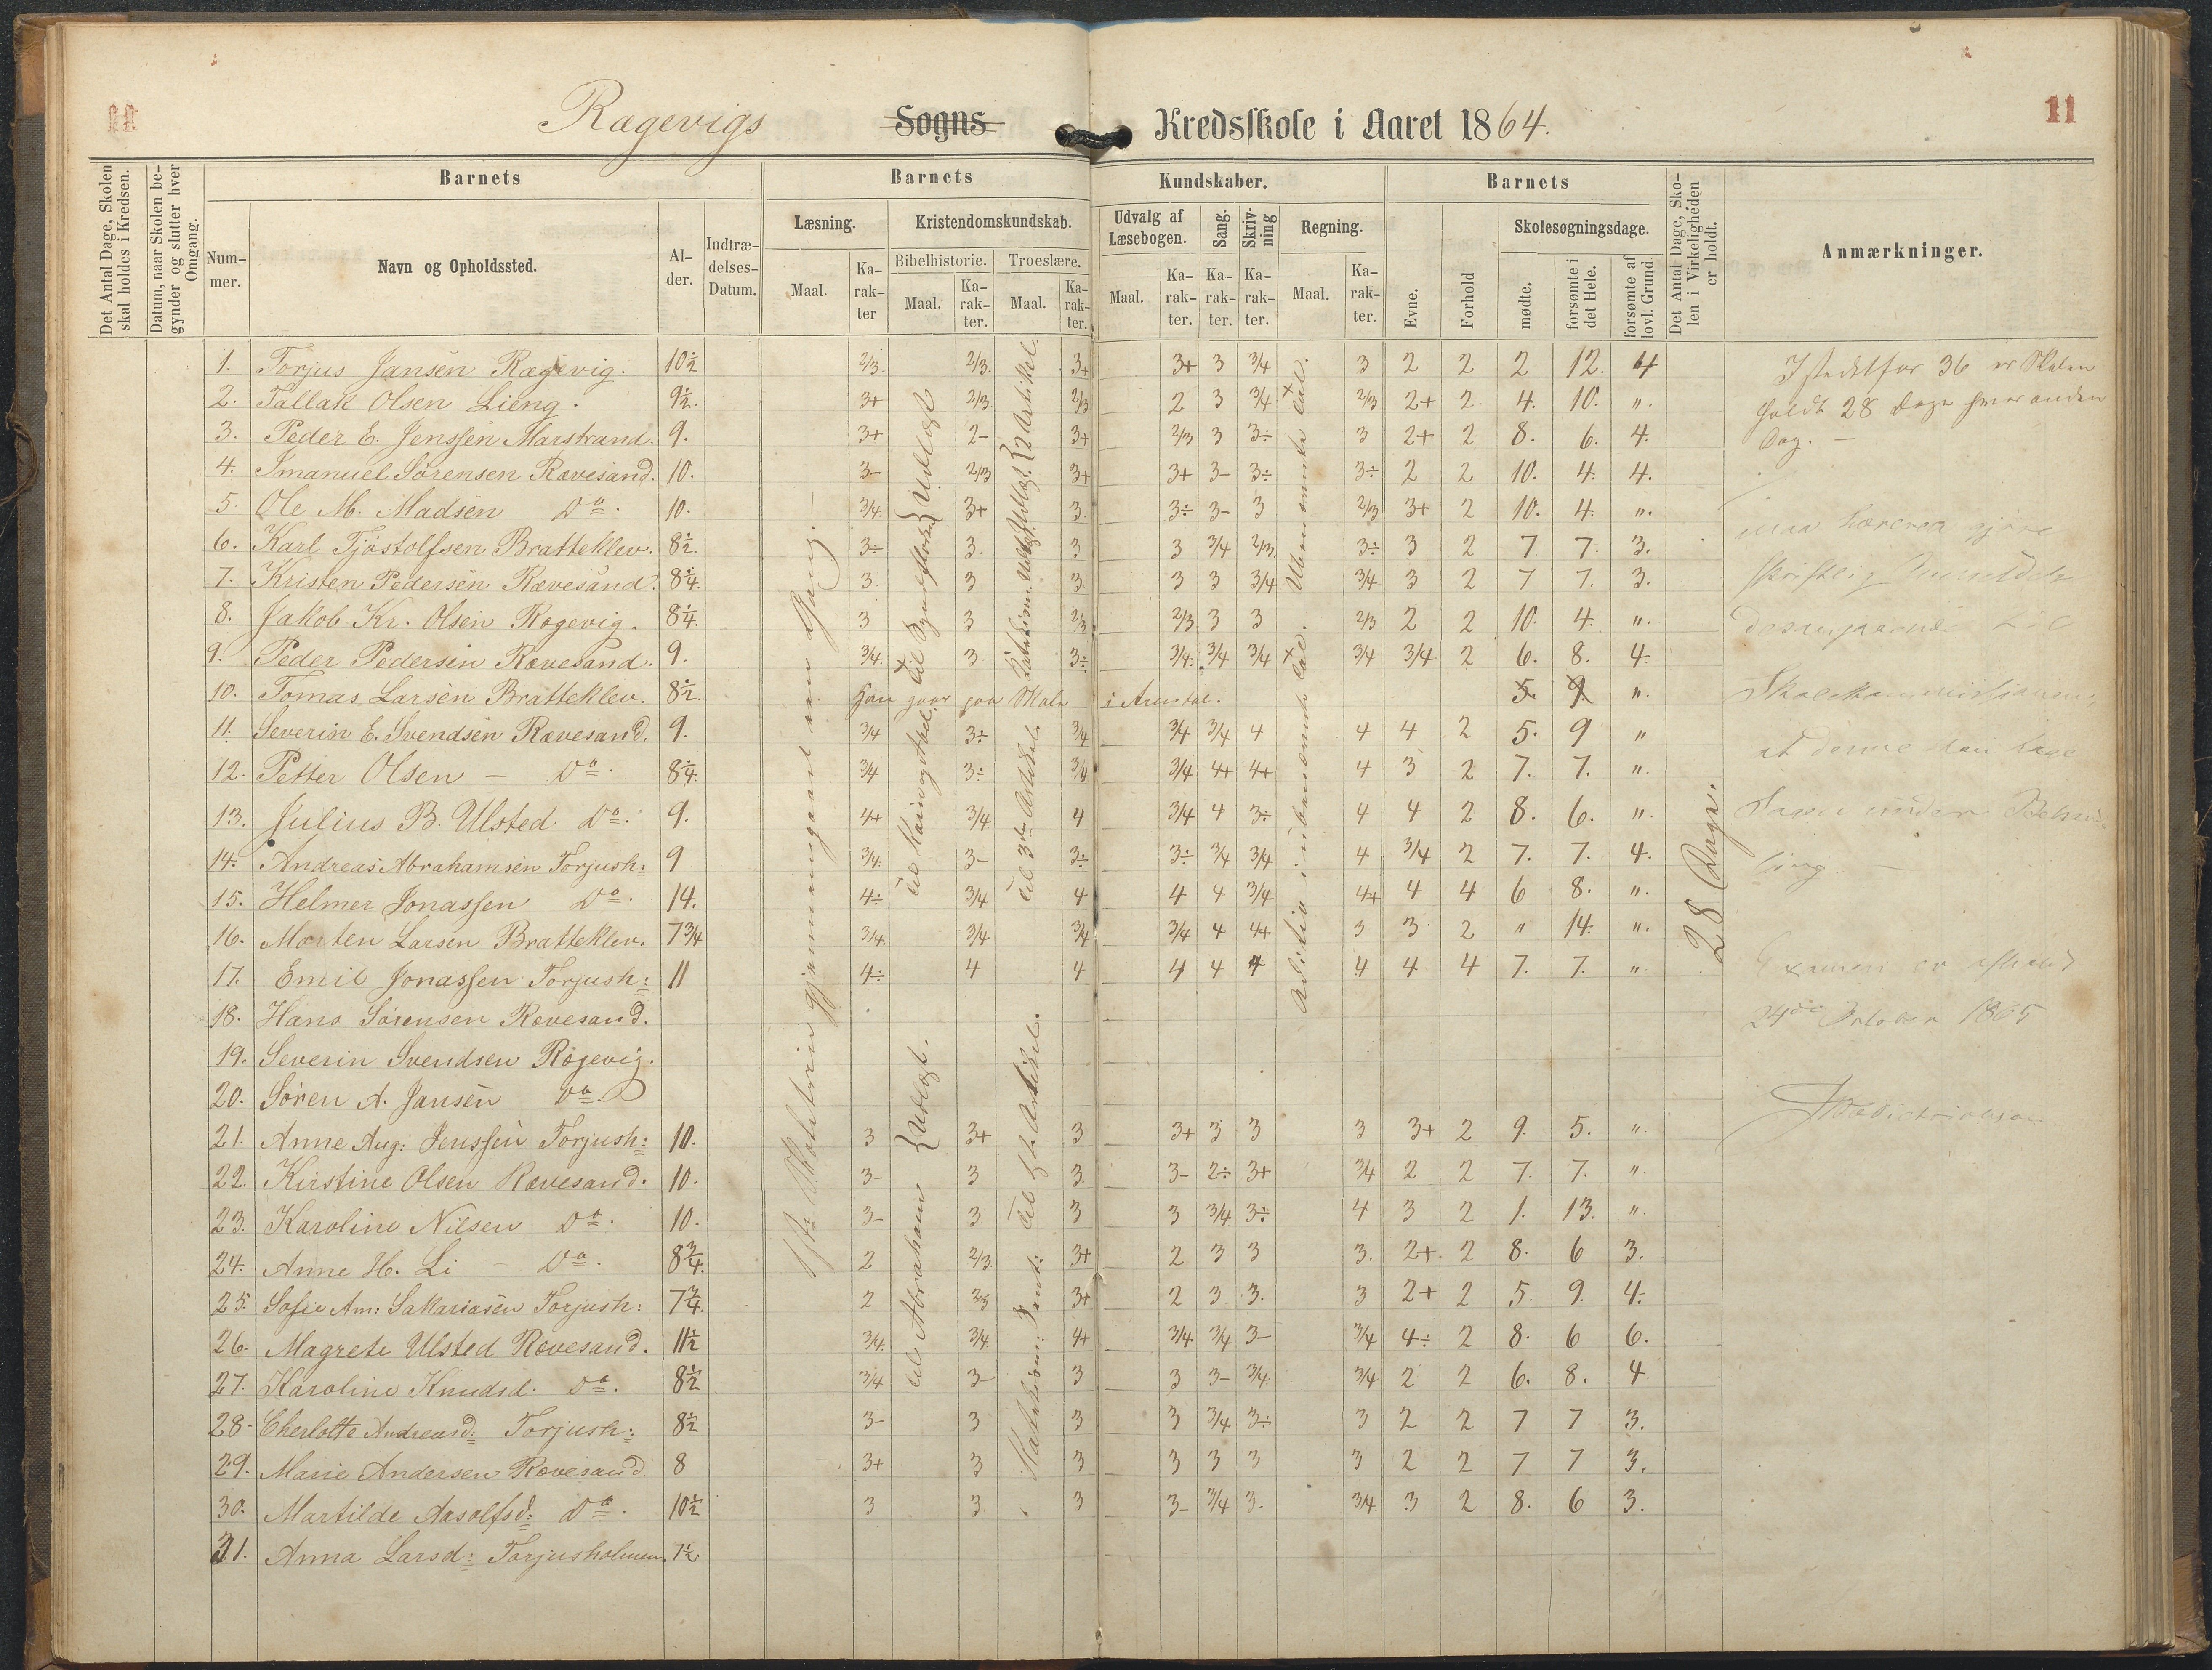 11
11
Rægevigs Sogns Kredsskole i Aaret 1864.
Det Antal Dage, Skolen skal holdes i Kredsen.
Datum, naar Skolen begynder og slutter hver Omgang.
Barnets
Nummer.
Navn og Opholdssted.
Alder.
Indtrædelses-Datum.
Barnets Kundskaber.
Læsning.
Maal.
Karakter
Kristendomskundskab.
Bibelhistorie.
Maal.
Karakter.
Troeslære.
Maal.
Karakter.
Udvalg af Læsebogen.
Maal.
Karakter.
Sang.
Karakter.
Skrivning
Karakter.
Regning.
Maal.
Karakter.
Barnets
Evne.
Forhold
Skolesøgningsdage.
mødte.
forsømte i det Hele.
forsømte af lovl. Grund.
Det Antal Dage, Skolen i Virkeligheden er holdt.
Anmærkninger.
1. Torjus Jansen Rægevig. 10½ 2/3. 2/3. 3+ 3+ 3 3/4 3 2 2 2 12. 4
2. Tallak Olsen Lieng. 9½. 3+ 2/3 2/3 2 3 3/4 2/3 2+ 2 4. 10. "
3. Peder E. Jenssen Marstrand. 9. 3+ 2- 3+ 2/3 3 3÷ 3 2+ 2 8. 6. 4.
4. Imanuel Sørensen Rævesand. 10. 3- 2/3 3+ 3+ 3- 3÷ 3÷ 2 2 10. 4. 4.
5. Ole M. Madsen Do. 10. 3/4. 3+ 3. 3÷ 3- 3 2/3 3+ 2 10. 4. "
6. Karl Tjøstolfsen Bratteklev. 8½. 3÷ 3. 3 3 3/4 2/3. 3÷ 3 2 7 7. 3.
7. Kristen Pedersen Rævesand. 8¼. 3. 3 3 3 3 3/4 3/4 3 2 7 7. 3.
8. Jakob Kr. Olsen Rægevig. 8¼. 3 3 2/3 2/3. 3 3 2/3 2 2 10. 4. "
9. Peder Pedersen Rævesand. 9. 3/4. 3 3÷ 3/4. 3/4 3/4 3/4 3/4 2 6. 8. 4.
10. Tomas Larsen Bratteklev. 8½. Han gaar paa Skole i Arendal. 5. 9. "
11. Severin E. Svendsen Rævesand. 9. 3/4 3÷ 3/4 3/4 3/4 4 4 4 2 5. 9 "
12. Petter Olsen – Do. 8¼. 3/4 3÷ 3/4 3/4 4+ 4+ 4 3 2 7. 7. "
13. Julius B. Ulsted Do. 9. 4+ 3/4. 4 3/4 4 3÷ 4 4 2 8. 6. "
14. Andreas Abrahamsen Torjush: 9 3/4. 3- 3÷ 3÷ 3/4 3/4 4 3/4 2 7. 7. 4.
15. Helmer Jonassen Do. 14. 4÷ 3/4 4 4 4 3/4 4+ 4 4 6 8. "
16. Morten Larsen Bratteklev. 7¾ 3/4. 3/4 3/4 3/4 4 4+ 3 3 2 " 14. "
17. Emil Jonassen Torjush: 11 4÷ 4 4 4 4 4 4 4 4 7. 7. "
18. Hans Sørensen Rævesand.
19. Severin Svendsen Rægevig.
20. Søren A. Jansen Do.
21. Anne Aug: Jenssen Torjush: 10. 3 3+ 3 3+ 3 3 3 3+ 2 9. 5. "
22. Kirstine Olsen Rævesand. 10. 3- 3 3. 3- 2÷ 3+ 3/4 2 2 7. 7. "
23. Karoline Nilsen Do. 10. 3- 3. 3 3 3/4 3÷ 4 3 2 1. 13. "
24. Anne H. Li – Do. 8¾. 2 2/3. 3+ 2 3 3 3. 2+ 2 8. 6 3.
25. Sofie Am: Sakariasen Torjush: 7¾. 2 2/3 3+ 2 3 3. 3 2+ 2 5. 9. 4.
26. Magrete Ulsted Rævesand. 11½ 3/4. 3/4. 4+ 3/4 3/4 3- 3/4 4÷ 2 8. 6 6.
27. Karoline Knudsd. Do. 8½ 3/4 3- 3 3 3- 3/4. 3/4 2 2 6. 8. 4
28. Cherlotte Andreasd: Torjush: 8½ 3- 3 3 3 3/4 3÷ 3 2 2 7 7 3.
29. Marie Andersen Rævesand. 8 3+ 3 3 3 3 3 3 2 2 7 7 3.
30. Martilde Aasolfsd: Do. 10½ 3 3. 3 3- 3/4 3- 3/4 3 2 8. 6 3.
31. Anna Larsd: Torjusholmen. 7½
1ste Skoletrin gjennemgaaet en Gang. –
Til Syndfloden } Udlagt
til Kain og Abel.
til Abraham { Udlagt.
2 Artikel.
til 3die Artikel.
til 1ste Artikel.
Ubenævnte Tal.
Addition i ubenævnte Tal.
28 Dage.
Istedetfor 36 er Skolen
holdt 28 Dage hver anden
Dag. –
maa Læreren gjøre
skriftlig
desangaaende til
Skolekommissionen,
at denne kan tage
Sagen under Behand-
ling. –
Examen er afholdt
24de October 1865